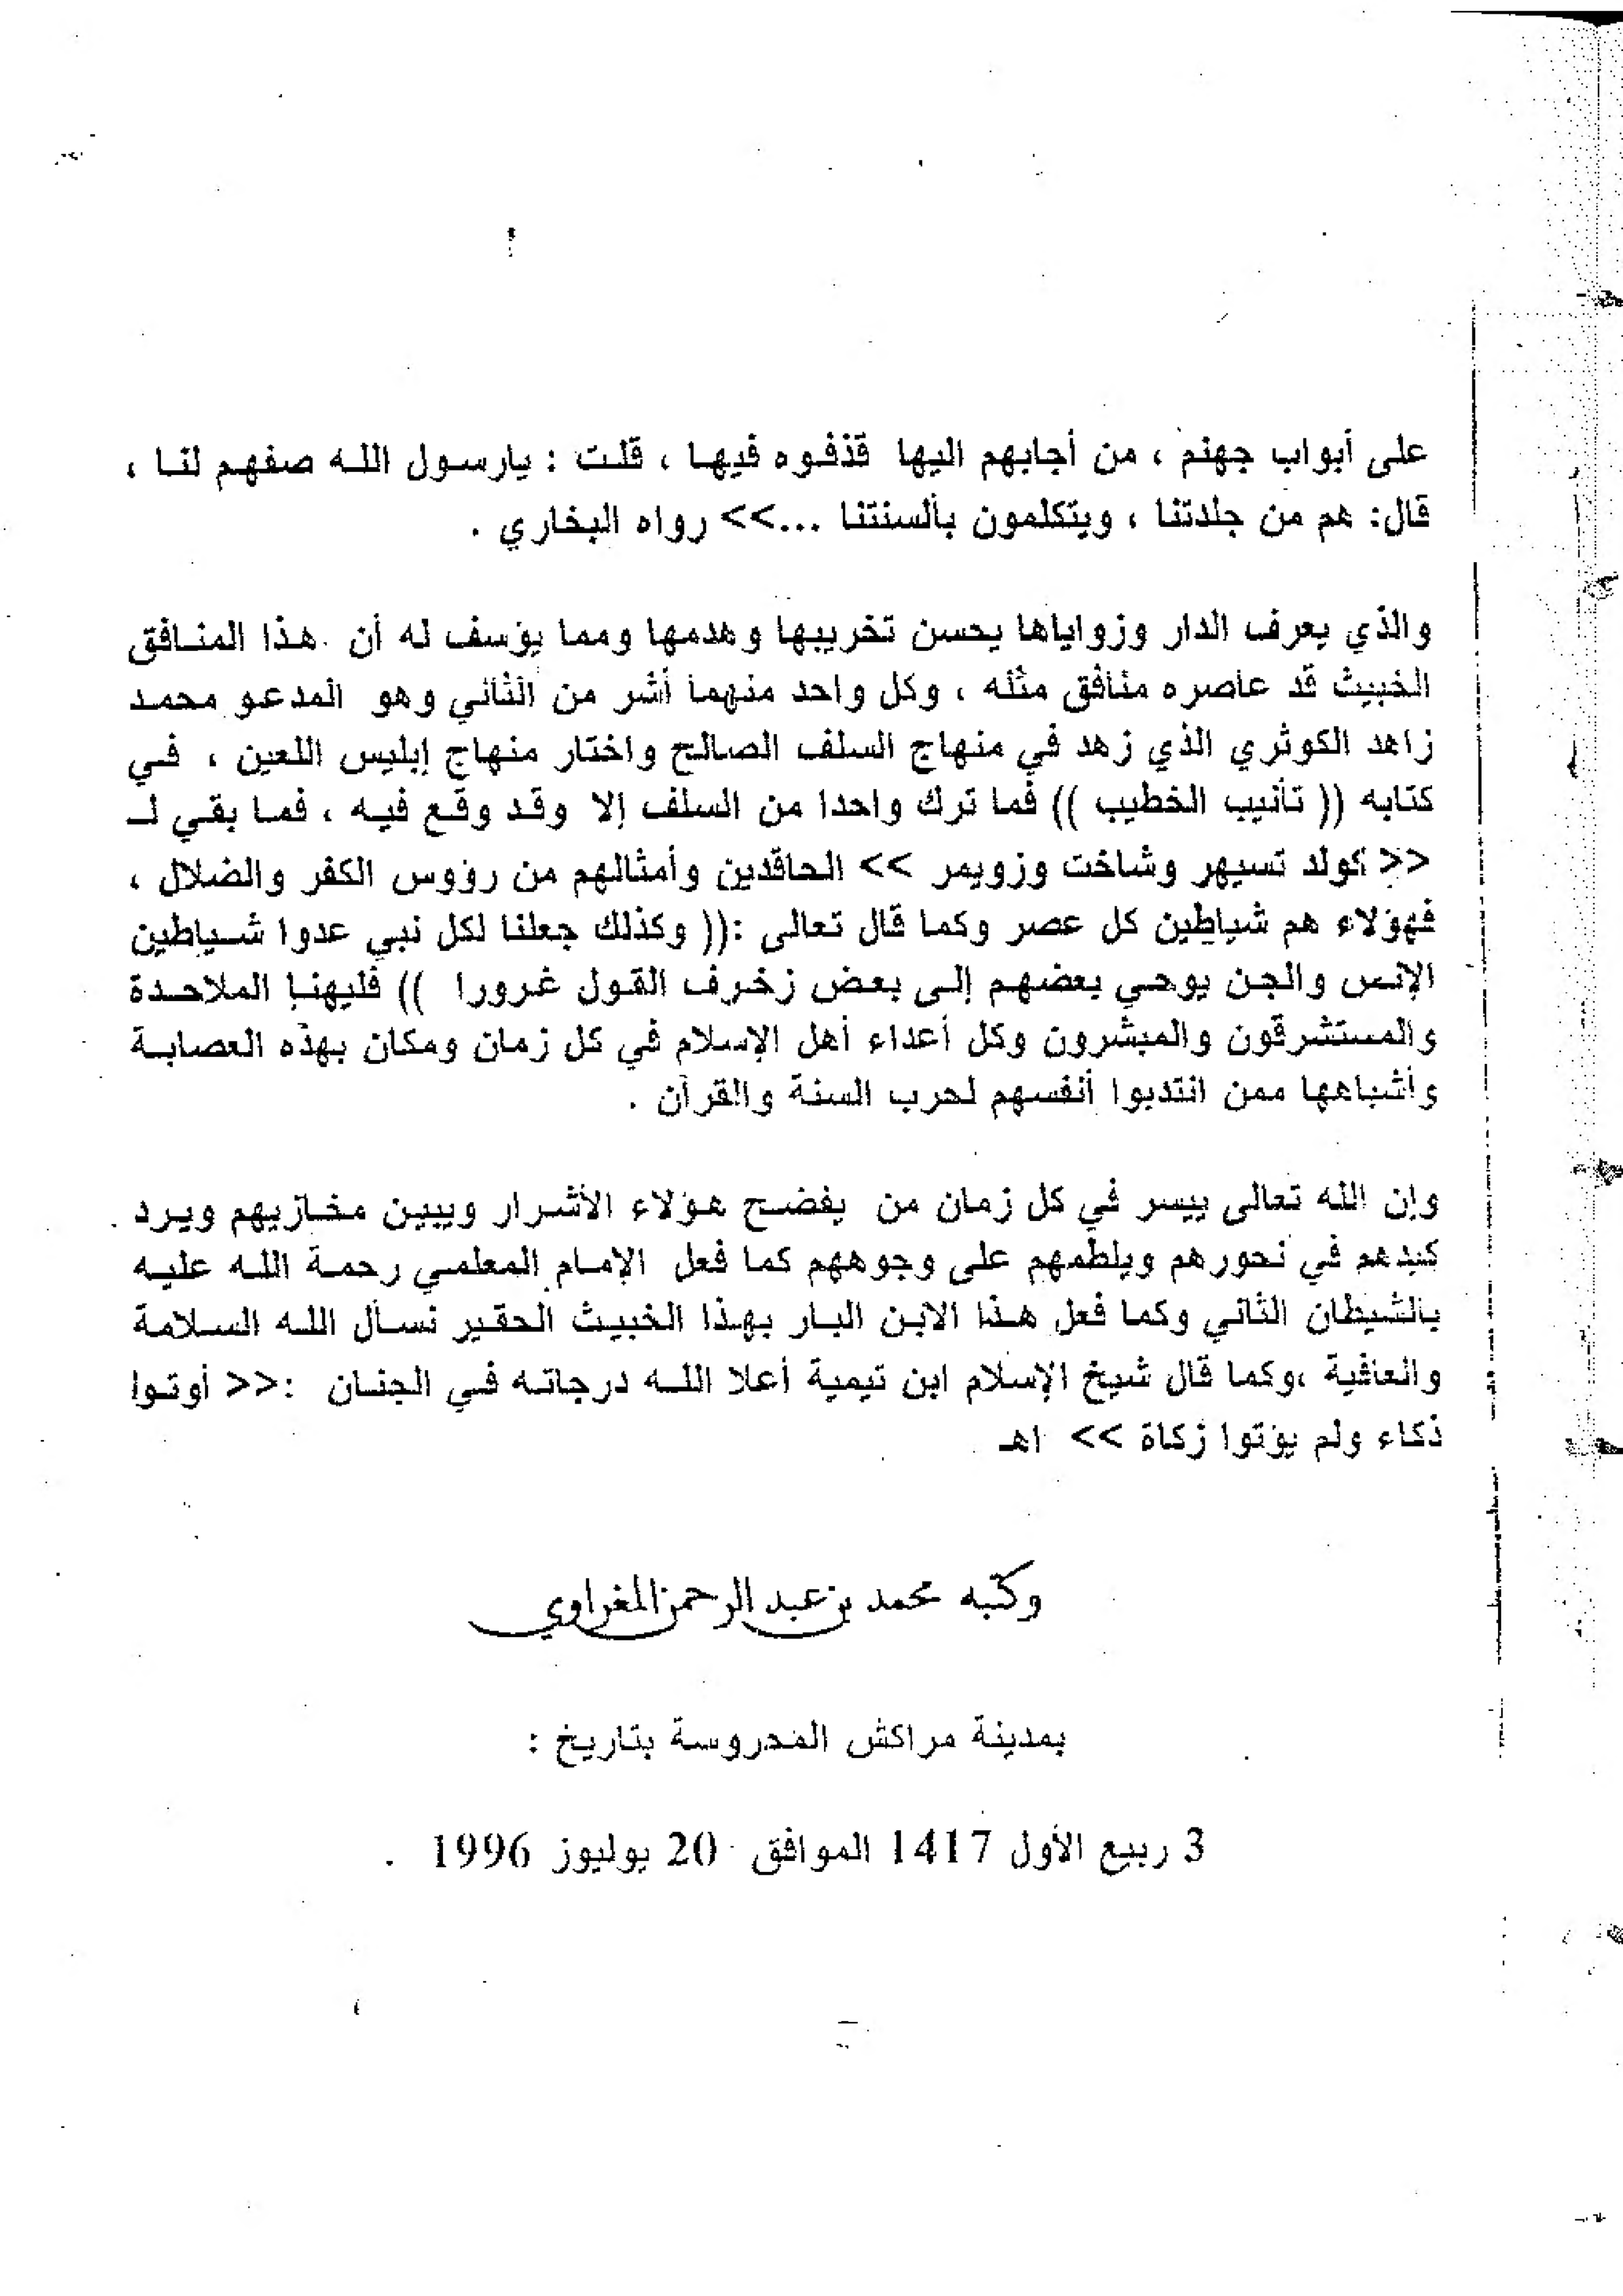 على أبواب جهنم ، من أجابهم اليها قذفوه فيها ، قلت : يارسول الله صفهم لنا ،
قال: هم من جلدتنا ، ويتكلمون بألسنتنا ...>> رواه البخاري .
والذي يعرف الدار وزواياها يحسن تخريبها وهدمها ومما يؤسف له أن هذا المنافق
الخبيث قد عاصره منافق مثله ، وكل واحد منهما أشر من الثاني وهو المدعو محمد
زاهد الكوثري الذي زهد في منهاج السلف الصالح واختار منهاج إبليس اللعين ، في
كتابه (( تأنيب الخطيب )) فما ترك واحدا من السلف إلا وقد وقع فيه ، فما بقي لـ
<< كولد تسيهر وشاخت وزويمر >> الحاقدين وأمثالهم من رؤوس الكفر والضلال ،
فهؤلاء هم شياطين كل عصر وكما قال تعالى :(( وكذلك جعلنا لكل نبي عدوا شياطين
الإنس والجن يوحي بعضهم إلى بعض زخرف القول غرورا )) فليهنإ الملاحدة
والمستشرقون والمبشرون وكل أعداء أهل الإسلام في كل زمان ومكان بهذه العصابة
وأشباهها ممن انتدبوا أنفسهم لحرب السنة والقرآن .
وإن الله تعالى ييسر في كل زمان من يفضح هؤلاء الأشرار ويبين مخازيهم ويرد
كيدهم في نحورهم ويلطمهم على وجوههم كما فعل الإمام المعلمي رحمة الله عليه
بالشيطان الثاني وكما فعل هذا الابن البار بهذا الخبيث الحقير نسأل الله السلامة
والعافية ،وكما قال شيخ الإسلام ابن تيمية أعلا الله درجاته في الجنان :<< أوتوا
ذكاء ولم يؤتوا زكاة >> اهـ
وكتبه محمد بن عبد الرحمن المغراوي
بمدينة مراكش المحروسة بتاريخ :
3 ربيع الأول 1417 الموافق 20 يوليوز 1996 .